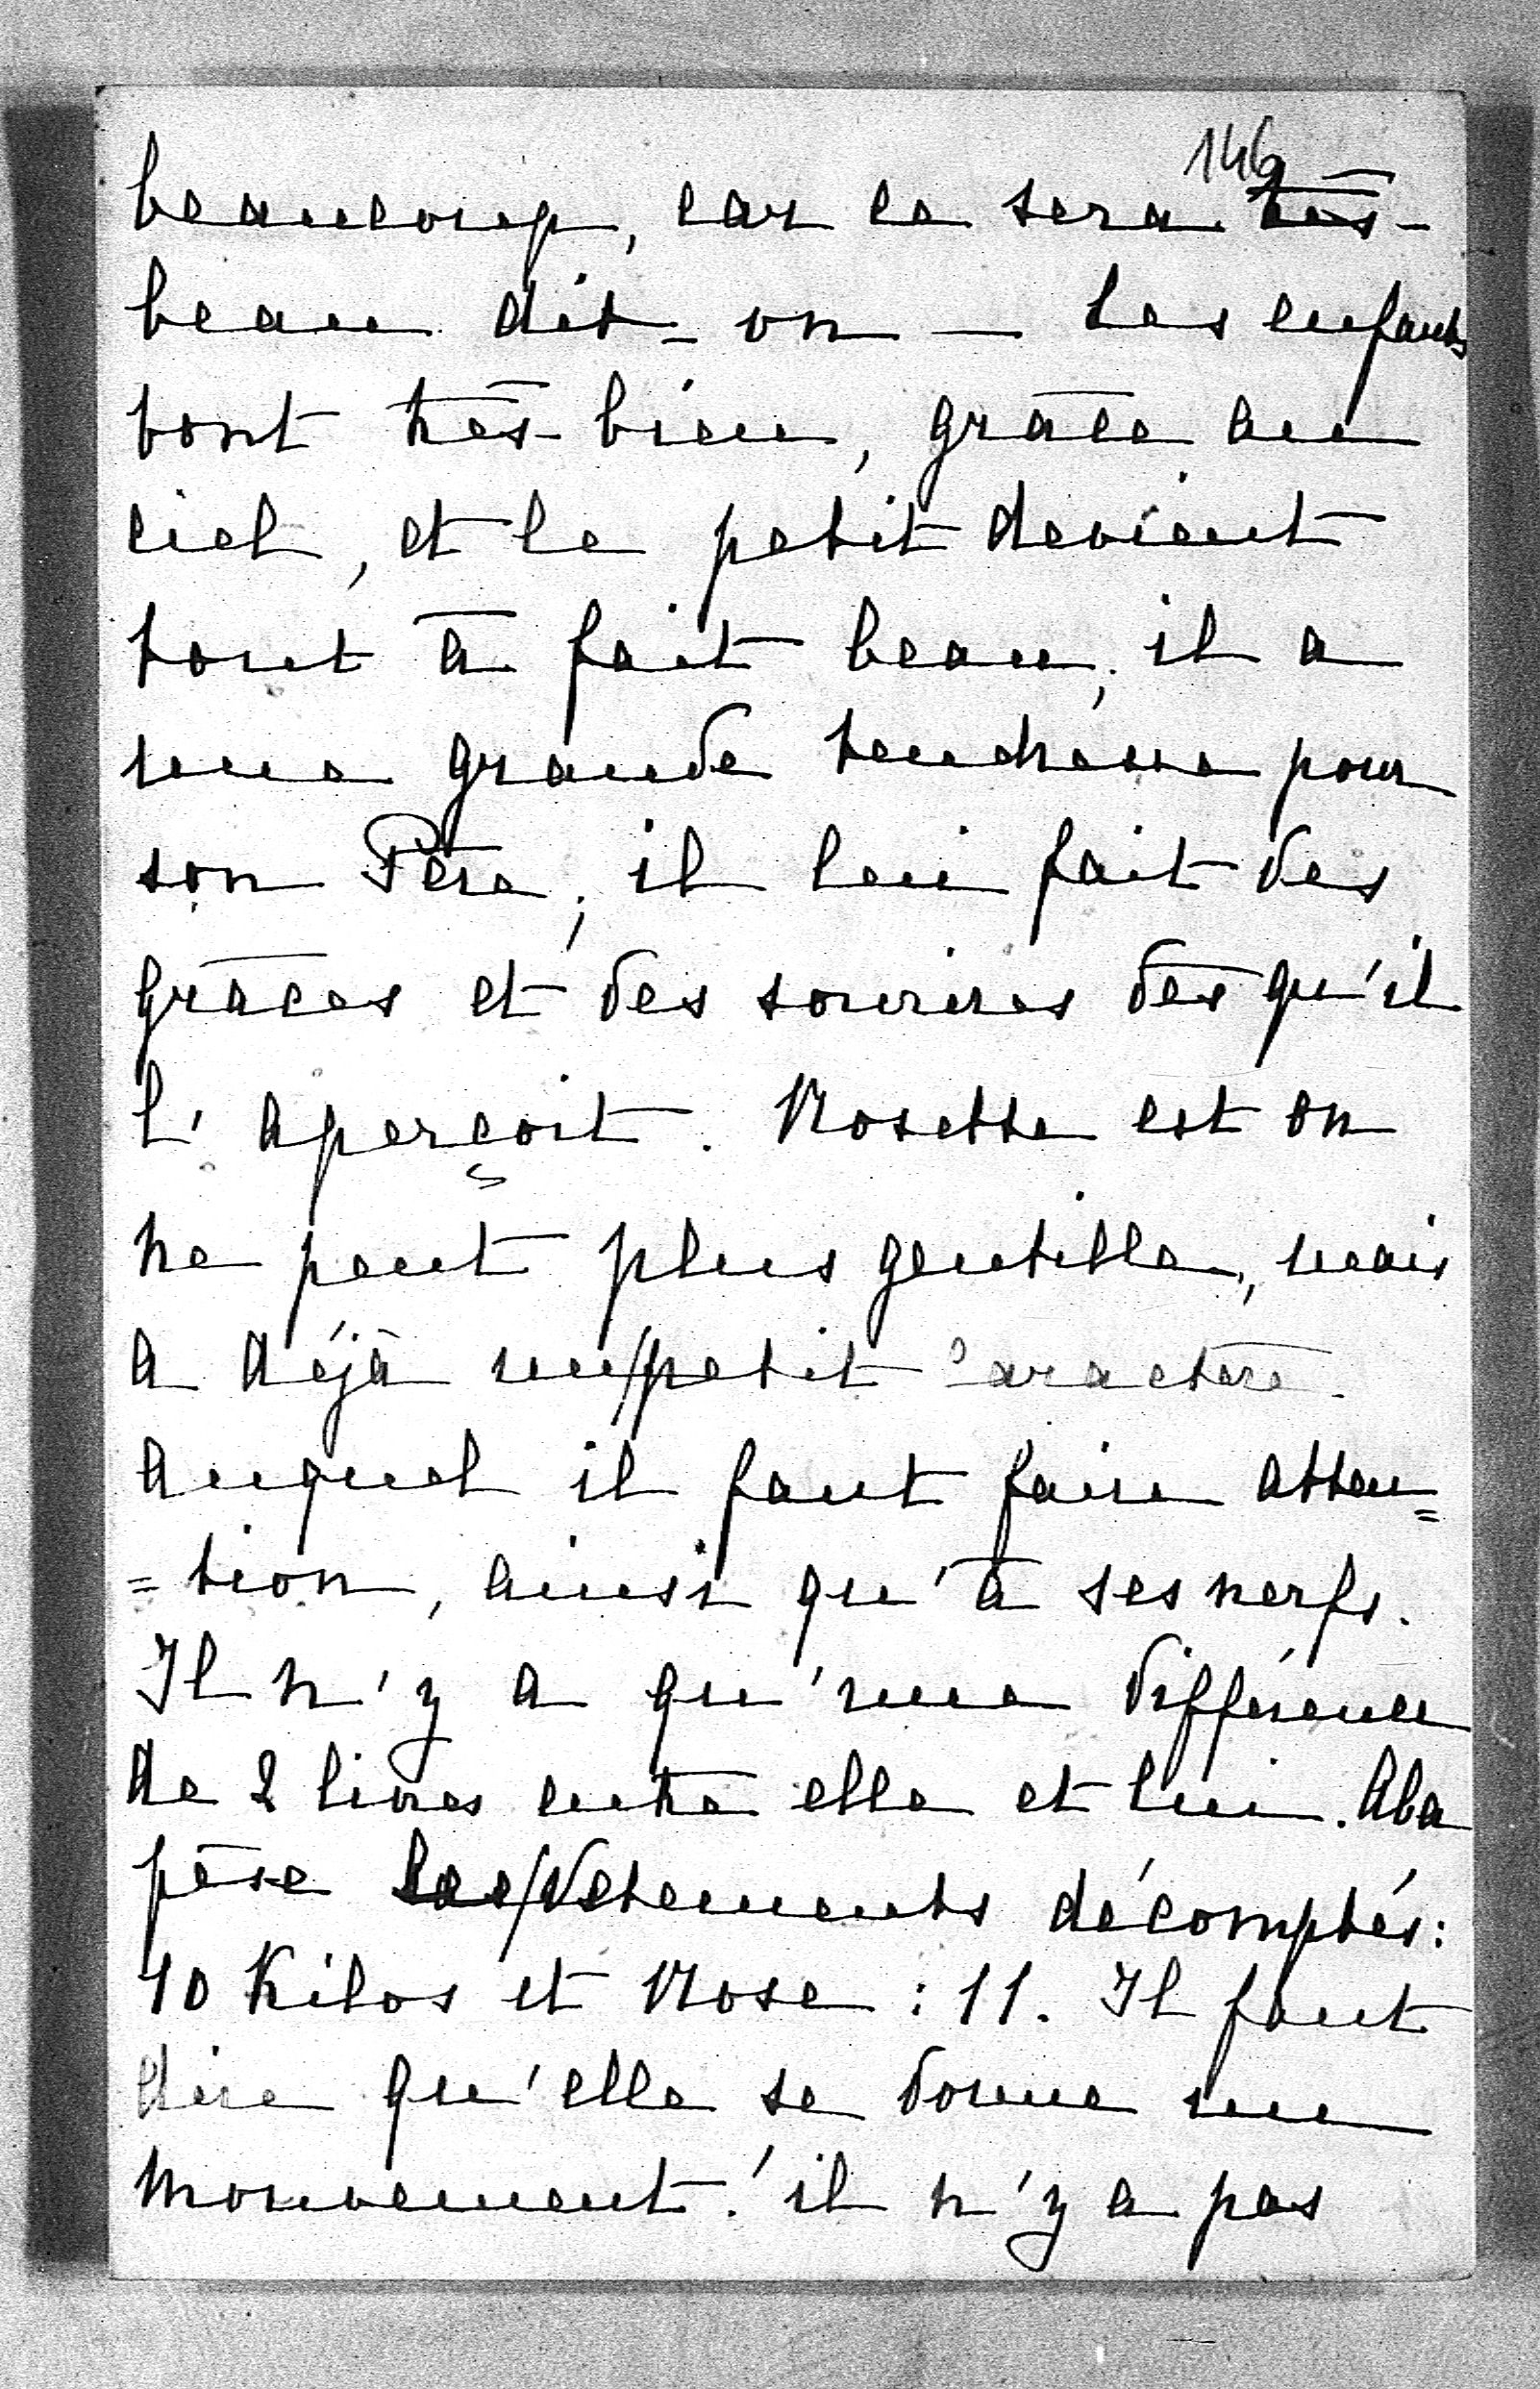 146
beaucoup, car ce sera très-
beau dit-on — Les enfants
vont très-bien, grâce au
ciel, et le petit devient
tout à fait beau; il a
une grande tendresse pour
son Père; il lui fait des
grâces et des sourires dès qu'il
l'aperçoit. Rosette est on
ne peut plus gentille, mais
a déjà un/petit caractère
auquel il faut faire atten=
=tion, ainsi qu'à ses nerfs.
Il n'y a qu'une différence
de 2 livres entre elle et lui. Aba
pèse les/vetements décomptés:
10 Kilos et Rose : 11. Il faut
dire qu'elle se donne un
mouvement! il n'y a pas